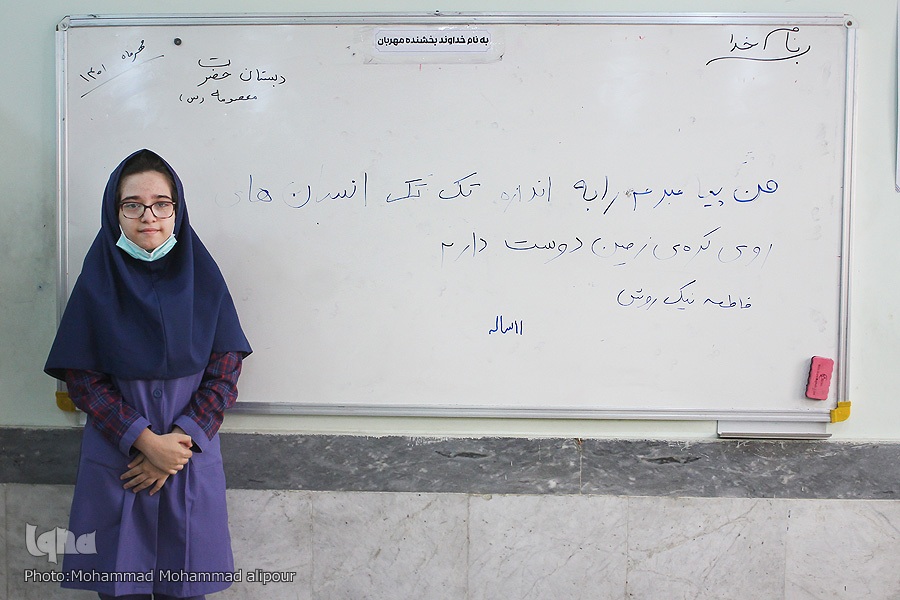 به نام خداوند بخشنده مهربان
بنام خدا
مهرماه ۱۴۰۱
دبستان حضرت
معصومه (س)
من پیامبرم را به اندازه تک تک انسان های
روی کره‌ی زمین دوست دارم
فاطمه نیک روش
۱۱ ساله
iqna
Photo:Mohammad Mohammad alipour